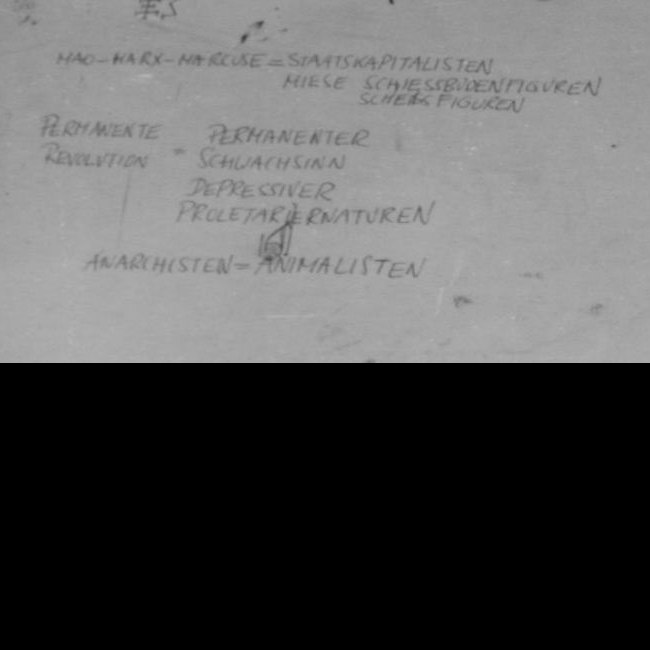 MAO-MARX-MARCUSE = STAATSKAPITALISTEN
MIESE SCHIESSBUDENFIGUREN
FIGUREN
PERMANENTE PERMANENTER
REVOLUTION = SCHWACHSINN
DEPRESSIVER
PROLETARIERNATUREN
ANARCHISTEN = ANIMALISTEN